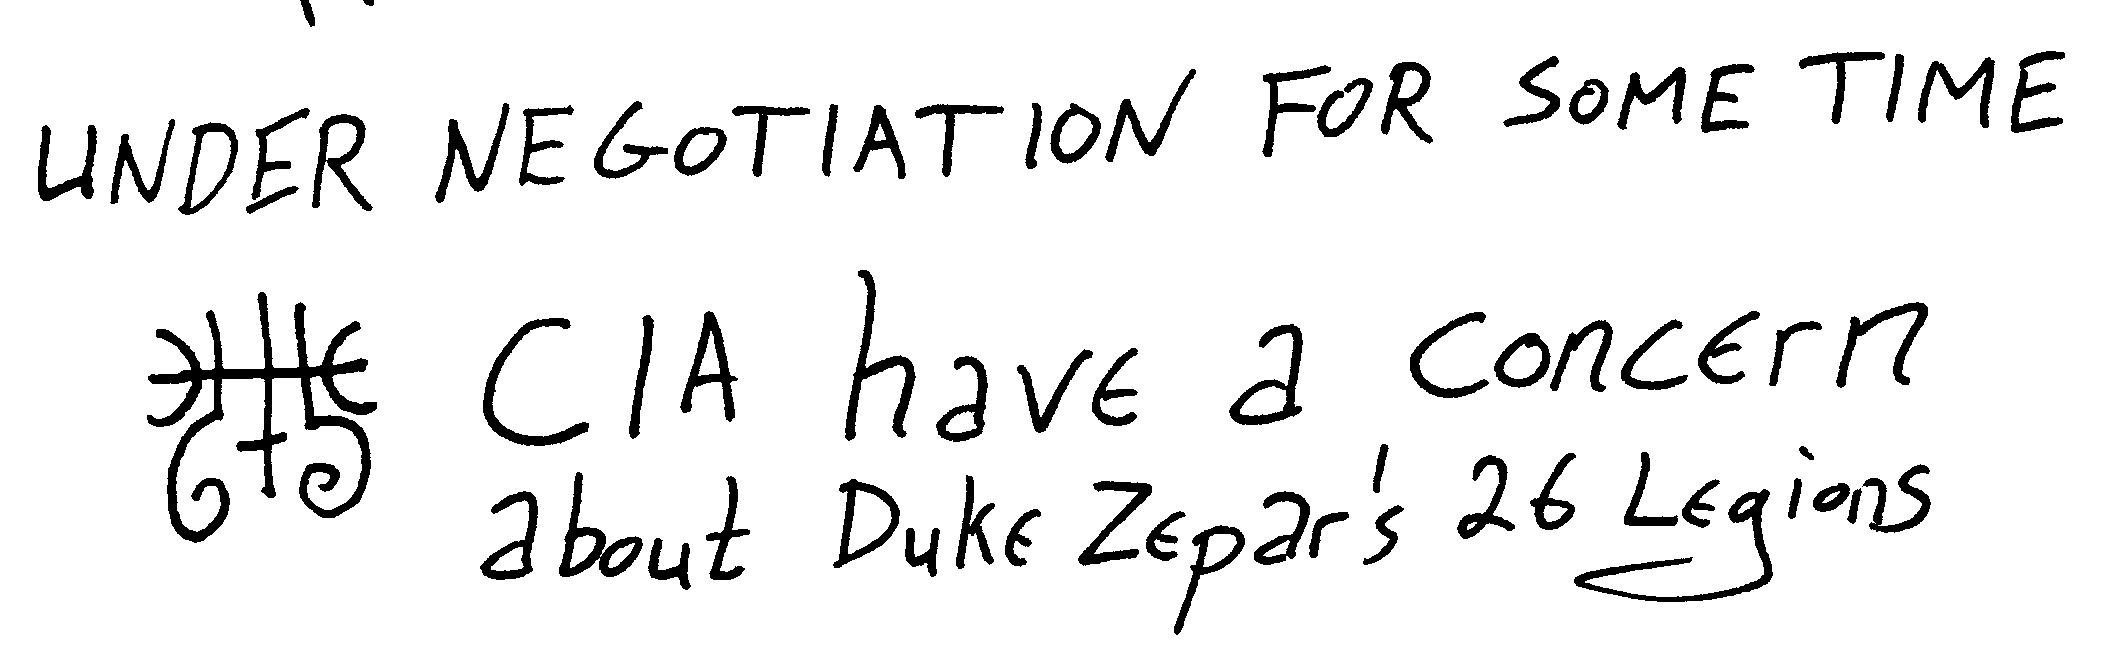 UNDER NEGOTIATION FOR SOME TIME
CIA have a concern
about Duke Zepar's 26 Legions